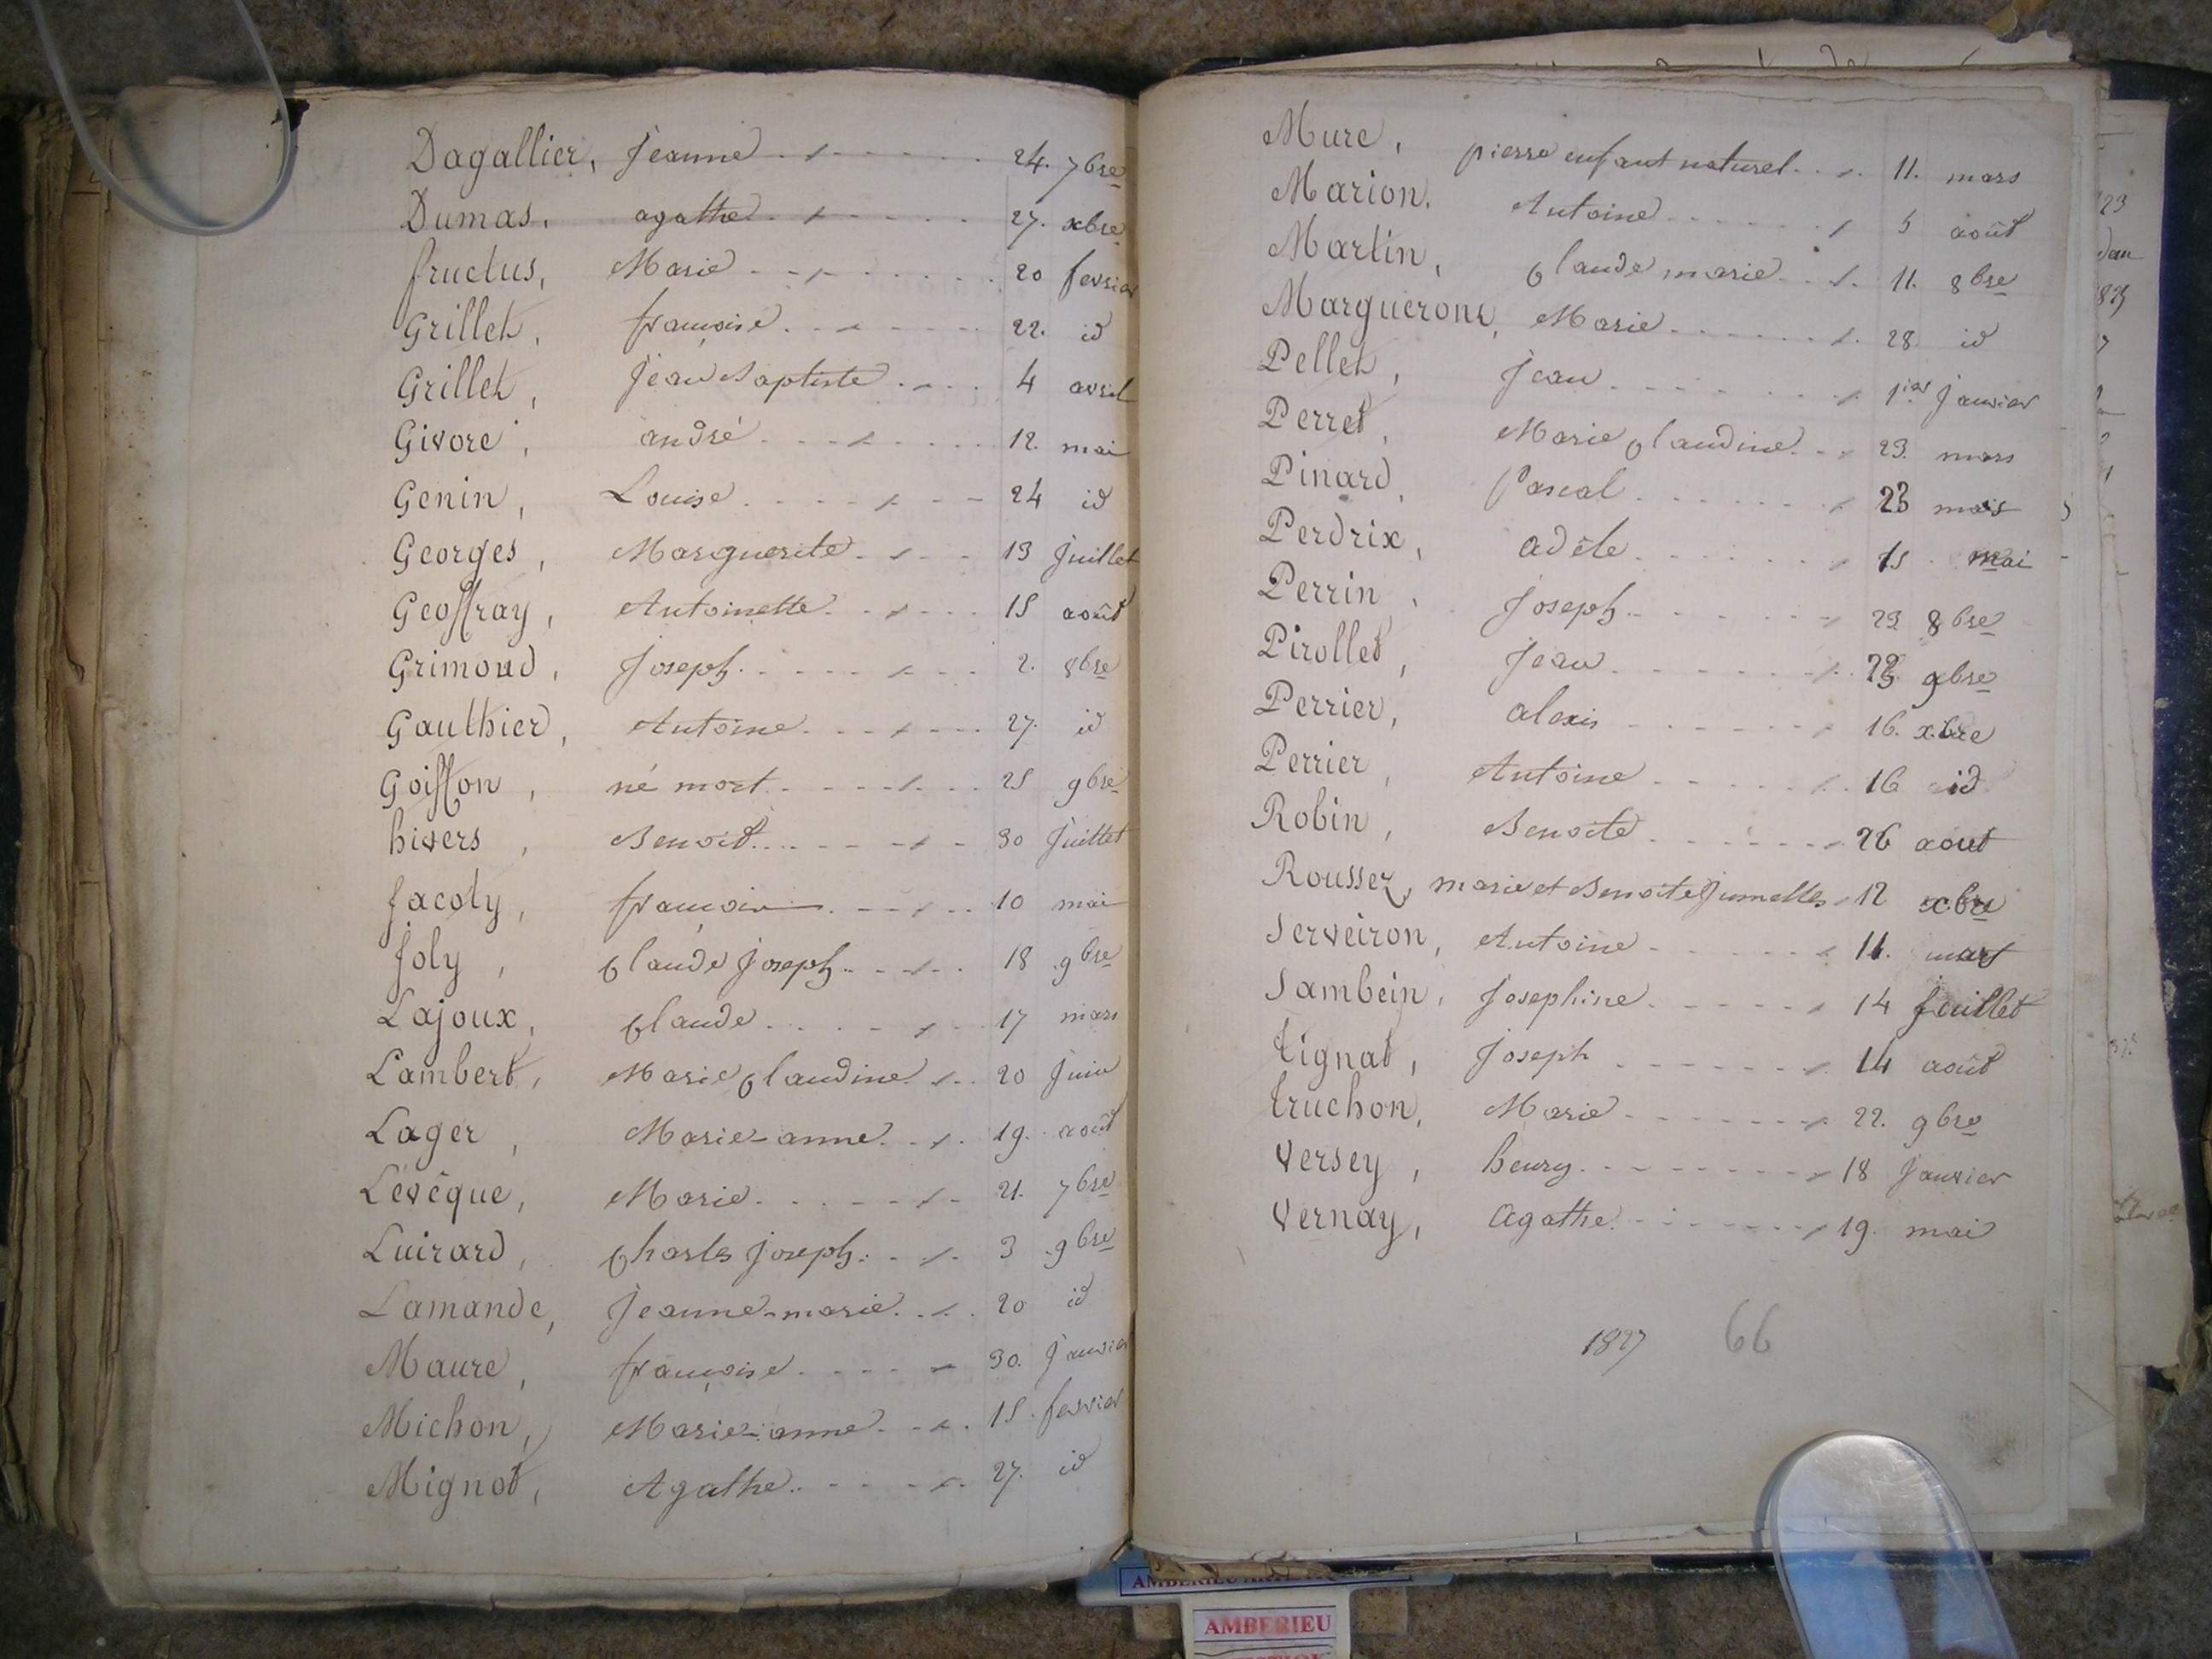 Dagallier, Jeanne 24. 7bre
Dumas, agathe 27. xbre
fructus, Marie 20 fevrier
Grillet, françoise 22. id
Grillet, Jean Baptiste 4 avril
Givore, andré 12. mai
Genin, Louise 24 id
Georges, Marguerite 13 Juillet
Geoffray, Antoinette 15 août
Grimoud, Joseph 2. 8bre
Gauthier, Antoine 27. id
Goiffon, né mort 25 9bre
hivers, Benoit 30 Juillet
Jacoty, françois 10 mai
Joly, Claude Joseph 18 9bre
Lajoux, Claude 17 mars
Lambert, Marie Claudine 20 Juin
Lager, Marie-anne 19. août
Lévêque, Marie 21. 7bre
Luirard, Charles Joseph 3 9bre
Lamande, Jeanne-marie 20 id
Maure, françoise 30. Janvier
Michon, Marie-anne 15. fevrier
Mignot, Agathe 27. id
Mure, pierre enfant naturel 11. mars
Marion, Antoine 5 août
Martin, Claude marie 11. 8bre
Marguerons, Marie 28 id
Pellet, Jean 1ier Janvier
Perret, Marie Claudine 23. mars
Pinard, Pascal 23 mars
Perdrix, adèle 15 mai
Perrin, Joseph 23 8bre
Pirollet, Jean 9bre
Perrier, alexis 16. xbre
Perrier, Antoine 16 id
Robin, Benoite 26 aout
Roussez, marie et Benoite Jumelles 12 xbre
Serveiron, Antoine 11. mars
Sambein, Josephine 14 Juillet
tignat, Joseph 14 août
truchon, Marie 22. 9bre
Versey, henry 18 Janvier
Vernay, Agathe 19. mai
1827 66
AMBERIEU